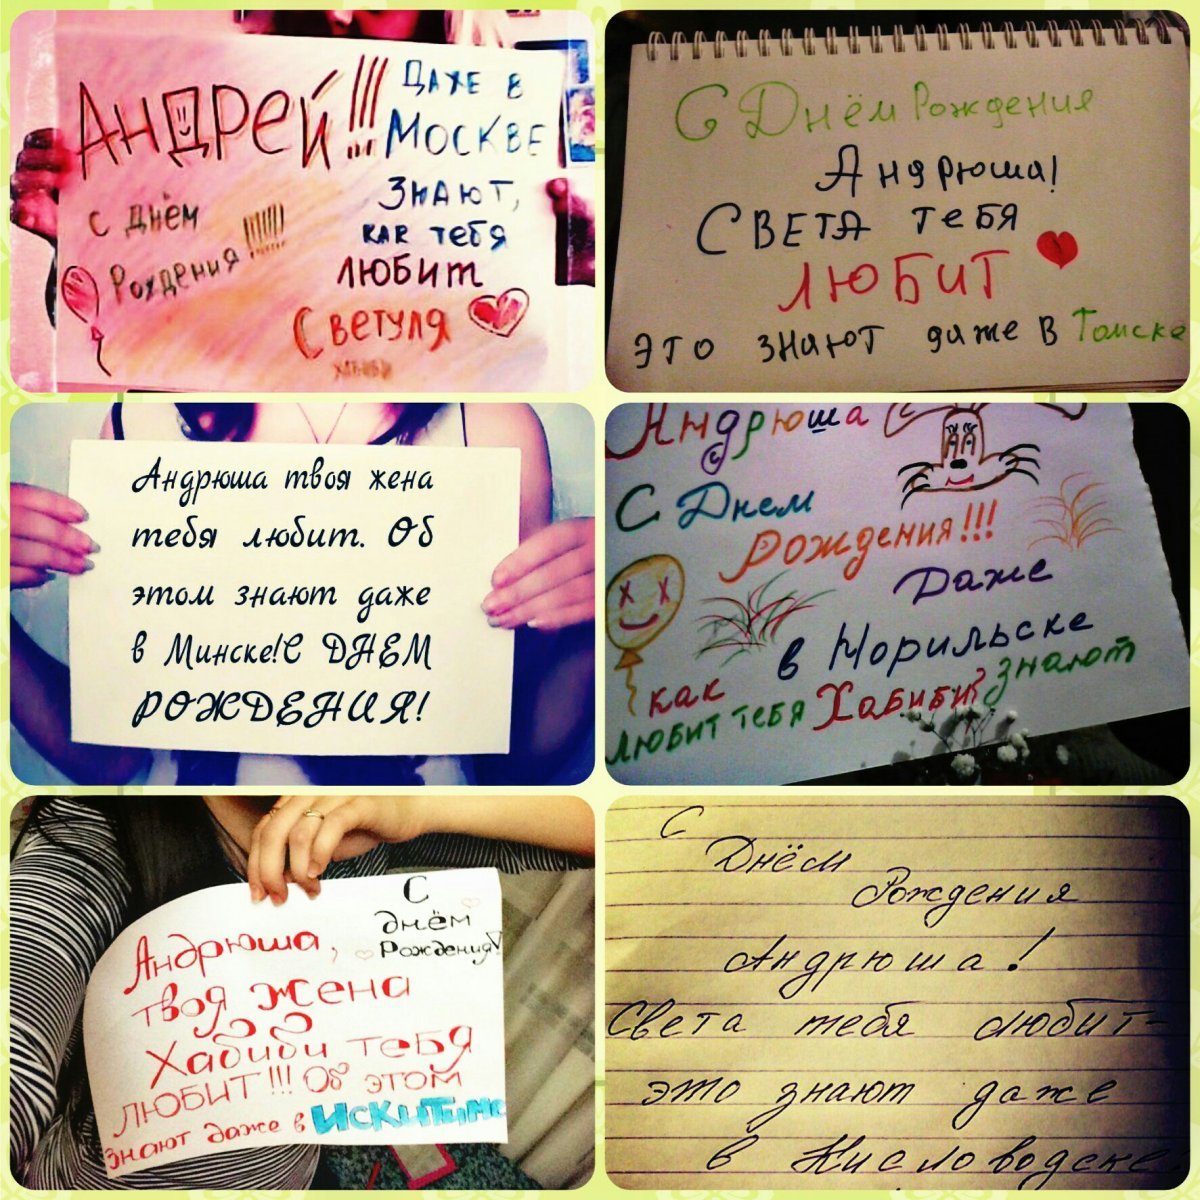 АНДРЕЙ!!!
С ДНЁМ
РОЖДЕНИЯ!!!!!!
ДАЖЕ В
МОСКВЕ
ЗНАЮТ,
КАК ТЕБЯ
ЛЮБИТ
СВЕТУЛЯ
ХАБИБИ
С Днём Рождения
Андрюша!
СВЕТА ТЕБЯ
ЛЮБИТ
ЭТО ЗНАЮТ даже в Томске
Андрюша твоя жена
тебя любит. Об
этом знают даже
в Минске!С ДНЕМ
РОЖДЕНИЯ!
Андрюша
С Днем
Рождения!!!
Даже
в Норильске
знают
как
любит тебя Хабиби
С
днём
Рождения
Андрюша,
твоя жена
Хабиби тебя
ЛЮБИТ!!! Об этом
знают даже в ИСКИТИМе
С
Днём
Рождения
Андрюша!
Света тебя любит-
это знают даже
в Кисловодске